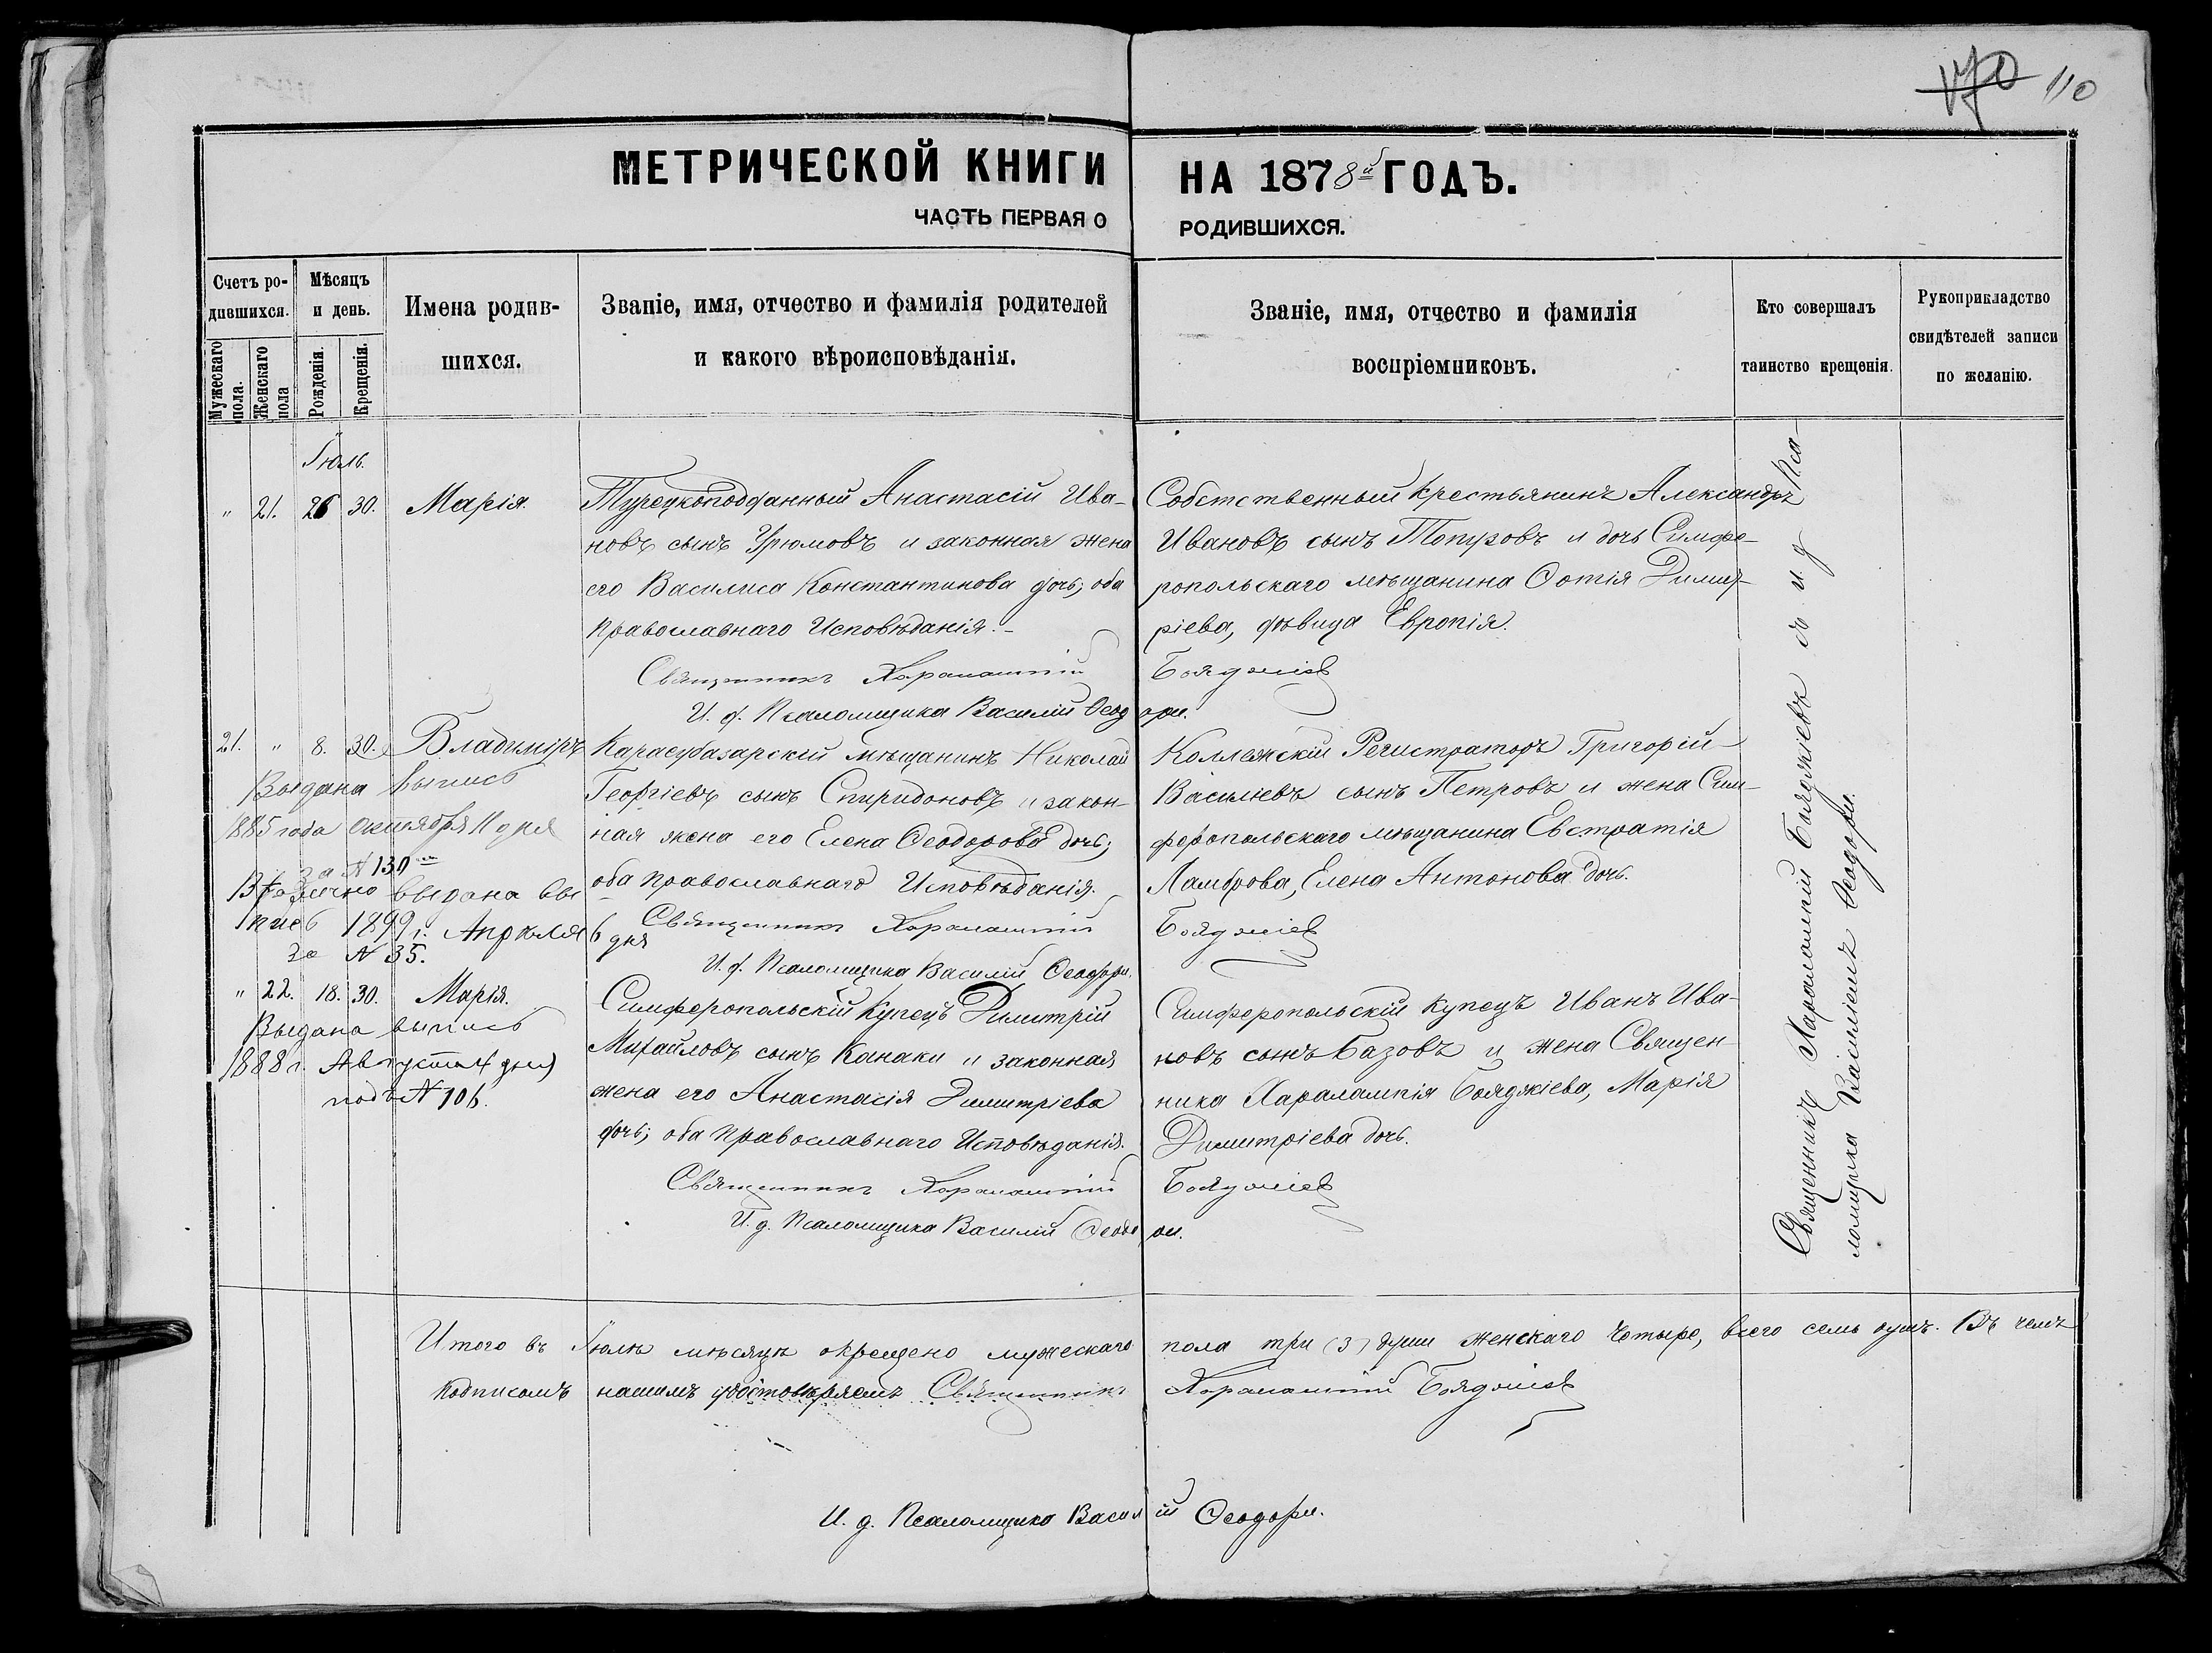 170 110
МЕТРИЧЕСКОЙ КНИГИ НА 1878й ГОДЪ.
ЧАСТЬ ПЕРВАЯ О РОДИВШИХСЯ.
Счетъ родившихся.
Мужескаго пола.
Женскаго пола
Мѣсяцъ и день.
Рожденія.
Крещенія.
Имена родившихся.
Званіе, имя, отчество и фамилія родителей
и какого вѣроисповѣданія.
Званіе, имя, отчество и фамилія
воспріемниковъ.
Кто совершалъ
таинство крещенія.
Рукоприкладство
свидѣтелей записи
по желанію.
Іюль.
" 21. 26 30. Марія.
Турецкоподданный Анастасій Ива-
новъ сынъ Урюмовъ и законная жена
его Василиса Константинова дочь; оба
православнаго Исповѣданія.-
Собственный крестьянинъ Александръ
Ивановъ сынъ Топузовъ и дочь Симфе-
ропольскаго мѣщанина Фотія Димит-
ріева, дѣвица Европія.
Священникъ Харалампій Бояджіев
И. д. Псаломщика Василій Ѳеодори.
21. " 8. 30. Владиміръ
Выдана выпись
1885 года октября 11 дня
за № 130
Вторично выдана вы
пись 1899 г. Апрѣля 6 дня
за № 35.
Карасубазарскій мѣщанинъ Николай
Георгіевъ сынъ Спиридоновъ и закон-
ная жена его Елена Ѳеодорова дочь;
оба православнаго Исповѣданія.
Коллежскій Регистраторъ Григорій
Васильевъ сынъ Петровъ и жена Сим-
феропольскаго мѣщанина Евстратія
Ламброва, Елена Антонова дочь.
Священникъ Харалампій Бояджіев
И. д. Псаломщика Василій Ѳеодори.
" 22. 18. 30. Марія.
Выдана выпись
1888 г. Августа 4 дня
подъ № 106.
Симферопольскій купецъ Димитрій
Михайловъ сынъ Канаки и законная
жена его Анастасія Димитріева
дочь; оба православнаго Исповѣданія.
Симферопольскій купецъ Иванъ Ива-
новъ сынъ Базовъ и жена Священ-
ника Харалампія Бояджіева, Марія
Димитріева дочь.
Священникъ Харалампій Бояджіев
И. д. Псаломщика Василій Ѳеодори.
Священникъ Харалампій Бояджіевъ и и. д. Пса-
ломщика Василіемъ Ѳеодори.
Итого въ Іюлѣ мѣсяцѣ окрещено мужескаго пола три (3) души женскаго четыре, всего семь душъ. Въ чемъ
подписомъ нашимъ удостовѣряемъ Священникъ Харалампій Бояджіев
И. д. Псаломщика Василій Ѳеодори.